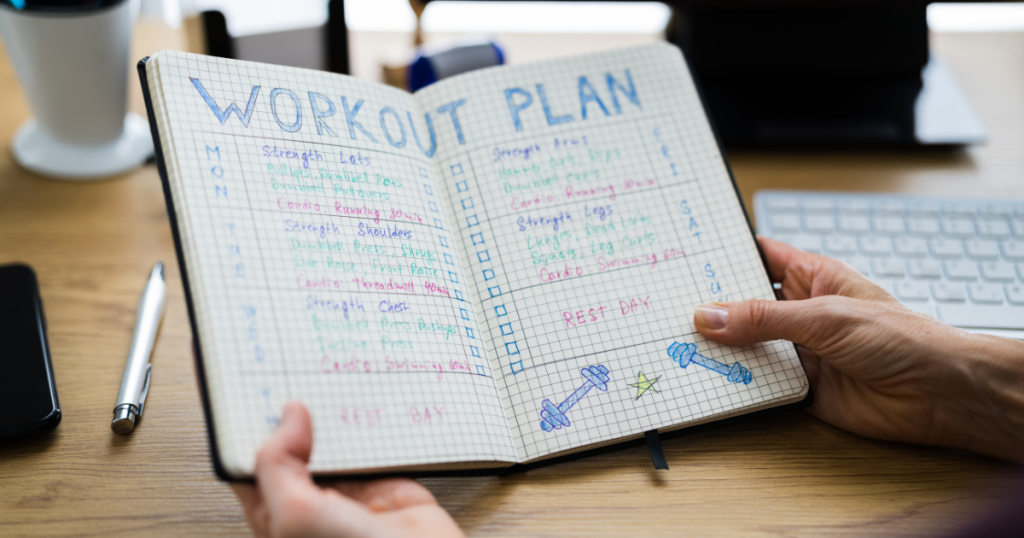 WORKOUT PLAN
MON
Strength Lats
Cardio Running 30min
TUE
Strength Shoulders
Dumbbell Press, Shrug
Side Raise, Front Raise
Cardio: Threadmill 40min
WED
Strength Chest
Dumbbell Press Pushups
Incline Press
Cardio Swimming 60min
REST DAY
FRI
Strength Arms
Dumbbell Curls
Cardio Running 30min
SAT
Strength Legs
Squats, Leg Curls
Cardio Swimming 60min
SU
REST DAY